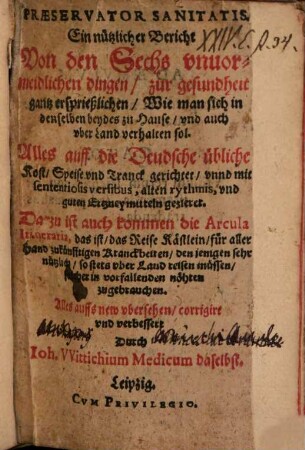 PRÆSERVATOR SANITATIS.
Ein nützlicher Bericht
Von den Sechs vnuor-
meidlichen dingen / zur gesundheit
gantz ersprießlichen / Wie man sich in
denselben beydes zu Hause / vnd auch
vber Land verhalten sol.
Alles auff die Deudsche übliche
Kost / Speise vnd Tranck gerichtet / vnnd mit
sententiosis versibus, alten rythmis, vnd
guten Ertzneymitteln gezieret.
Da zu ist auch kommen die Arcula
Itineraria, das ist / das Reise Kästlein / für aller
Hand zukünfftigen Kranckheiten / den jenigen sehr
nützlich / so stets vber Land reisen müssen /
in vorfallenden nöhten
zugebrauchen.
Alles auffs new vbersehen / corrigirt
vnd verbessert
Durch
Ioh. VVittichium Medicum daselbst.
Leipzig.
CVM PRIVILEGIO.